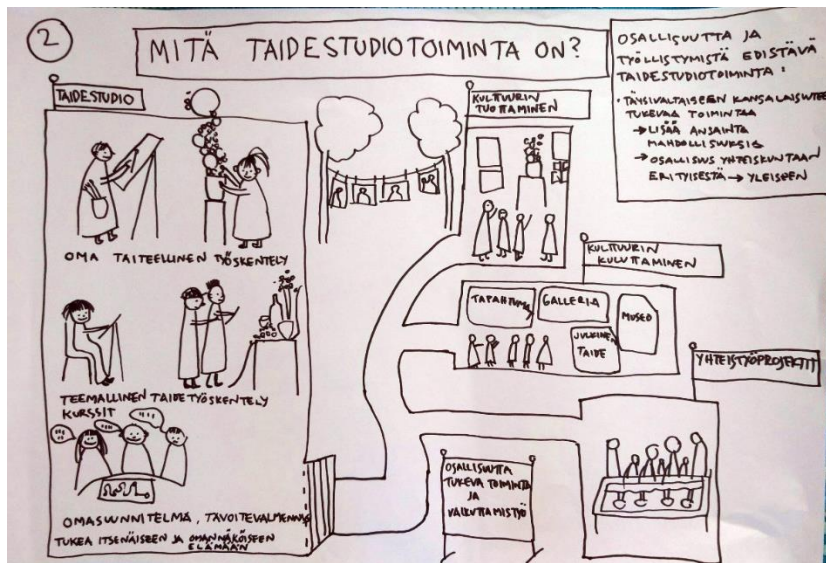 2
MITÄ TAIDESTUDIOTOIMINTA ON?
OSALLISUUTTA JA
TYÖLLISTYMISTÄ EDISTÄVÄ
TAIDESTUDIOTOIMINTA:
• TÄYSIVALTAISEEN KANSALAISUUTEEN
TUKEVAA TOIMINTAA
→ LISÄÄ ANSAINTA
MAHDOLLISUUKSIA
→ OSALLISUUS YHTEISKUNTAAN
ERITYISESTÄ → YLEISEEN
TAIDESTUDIO
OMA TAITEELLINEN TYÖSKENTELY
TEEMALLINEN TAIDETYÖSKENTELY
KURSSIT
OMASUUNNITELMA, TAVOITEVALMENNUS
TUKEA ITSENÄISEEN JA OMANNÄKÖISEEN
ELÄMÄÄN
KULTTUURIN
TUOTTAMINEN
KULTTUURIN
KULUTTAMINEN
TAPAHTUMA
GALLERIA
MUSEO
JULKINEN
TAIDE
YHTEISTYÖPROJEKTIT
OSALLISUUTTA
TUKEVA TOIMINTA
JA
VAIKUTTAMISTYÖ